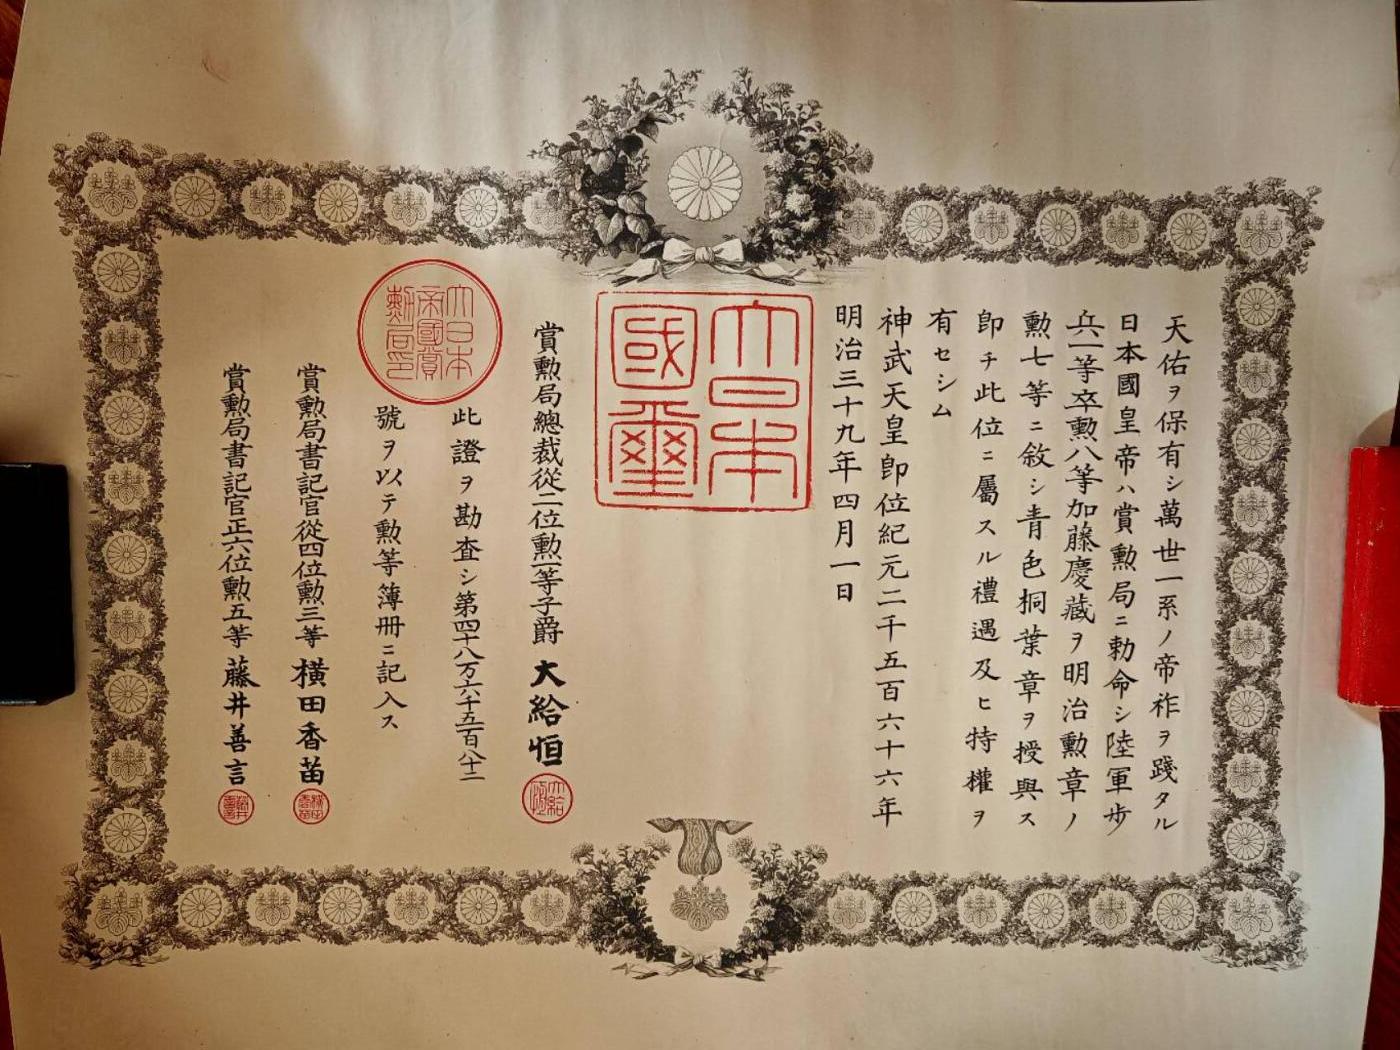 天佑ヲ保有シ萬世一系ノ帝祚ヲ踐タル
日本國皇帝ハ賞勲局ニ勅命シ陸軍歩
兵一等卒勲八等加藤慶藏ヲ明治勲章ノ
勲七等ニ敘シ青色桐葉章ヲ授與ス
即チ此位ニ屬スル禮遇及ヒ特權ヲ
有セシム
神武天皇即位紀元二千五百六十六年
明治三十九年四月一日
大日本
國璽
賞勲局總裁從二位勲一等子爵 大給恒
大給恒
大日本
帝國賞
勲局印
此證ヲ勘査シ第四十八万六千五百八十二
號ヲ以テ勲等簿冊ニ記入ス
賞勲局書記官從四位勲三等 横田香苗
賞勲局書記官正六位勲五等 藤井善言